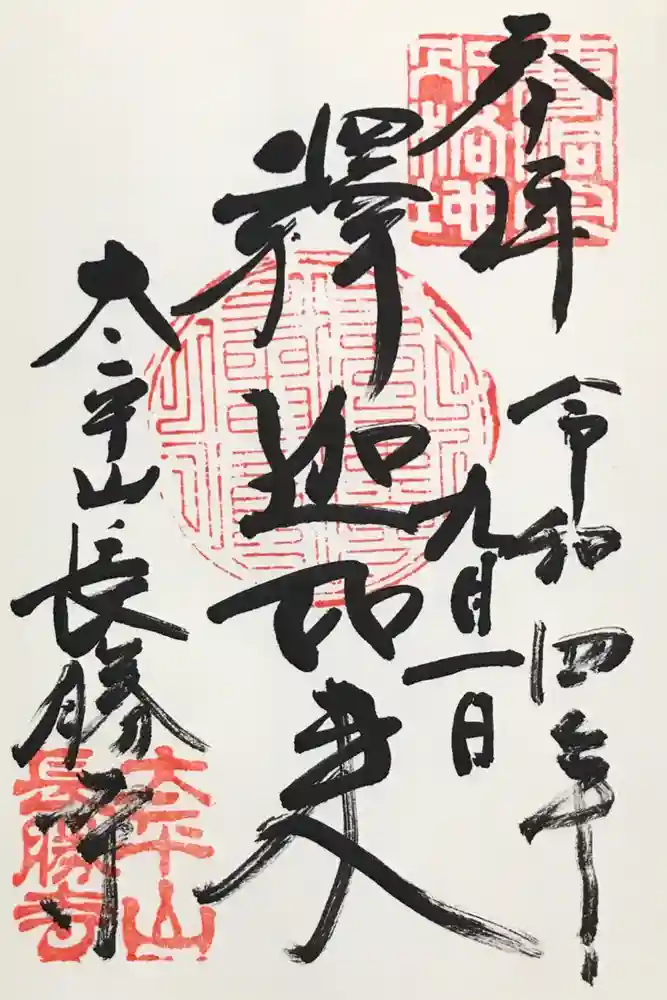 奉拝
令和四年
九月一日
釋迦如来
太平山長勝寺
太平山
長勝寺